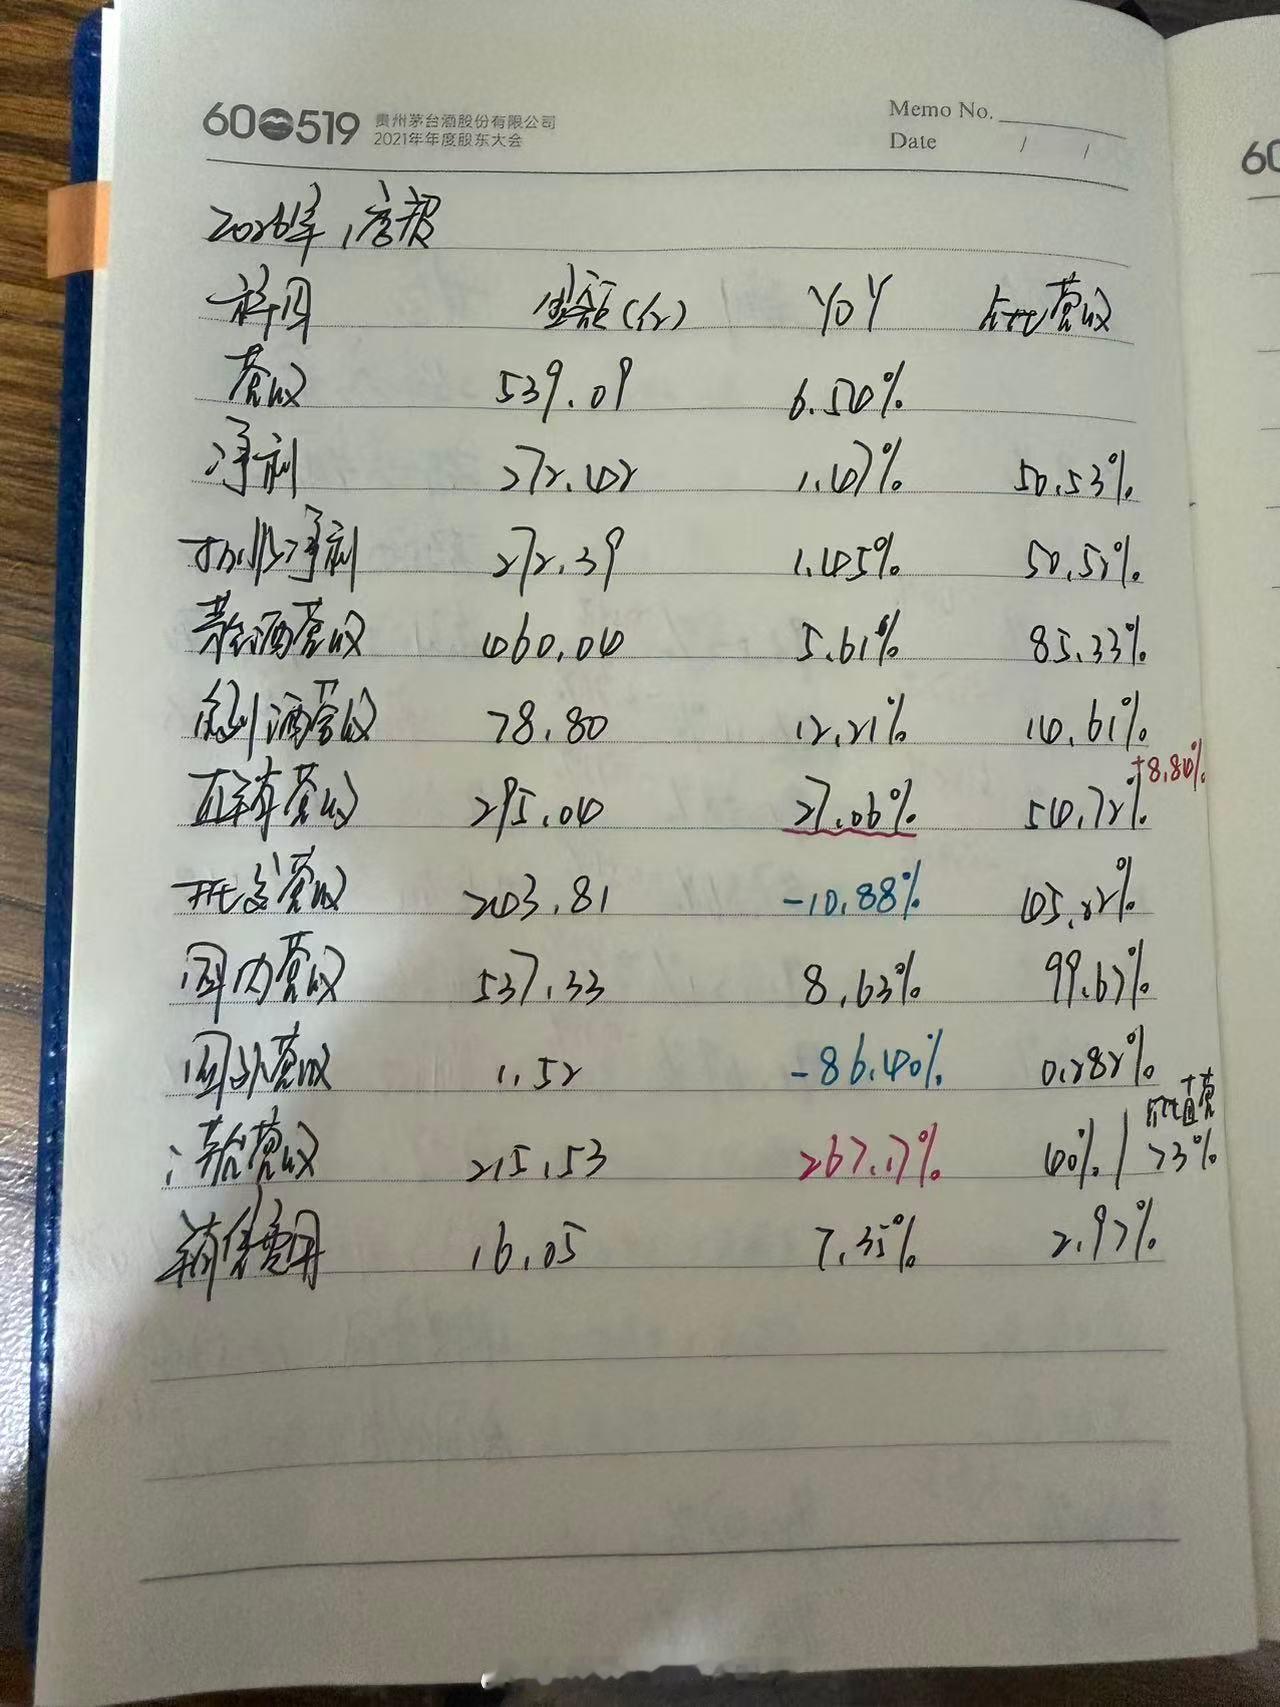 60 519 贵州茅台酒股份有限公司
2021年年度股东大会
Memo No.
Date / /
60
2026年1季报
科目 金额(亿) YOY 占比营收
营收 539.09 6.54%
净利 272.42 1.47% 50.53%
扣非净利 272.39 1.45% 50.52%
茅台酒营收 460.04 5.61% 85.33%
系列酒营收 78.80 12.21% 14.61%
+8.84%
直销营收 295.04 27.06% 54.72%
批发营收 243.81 -10.88% 45.22%
国内营收 537.33 8.63% 99.67%
国外营收 1.52 -86.40% 0.282%
占比直营
i茅台营收 215.53 267.17% 40% / 73%
销售费用 16.05 7.35% 2.97%